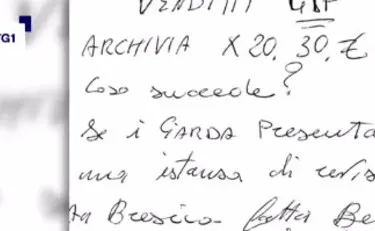 TG1
VENDITTI GIP
ARCHIVIA X 20. 30. €
Cosa succede?
Se i GARDA Presenta
una istanza di revis
ta Brescia fatta Be